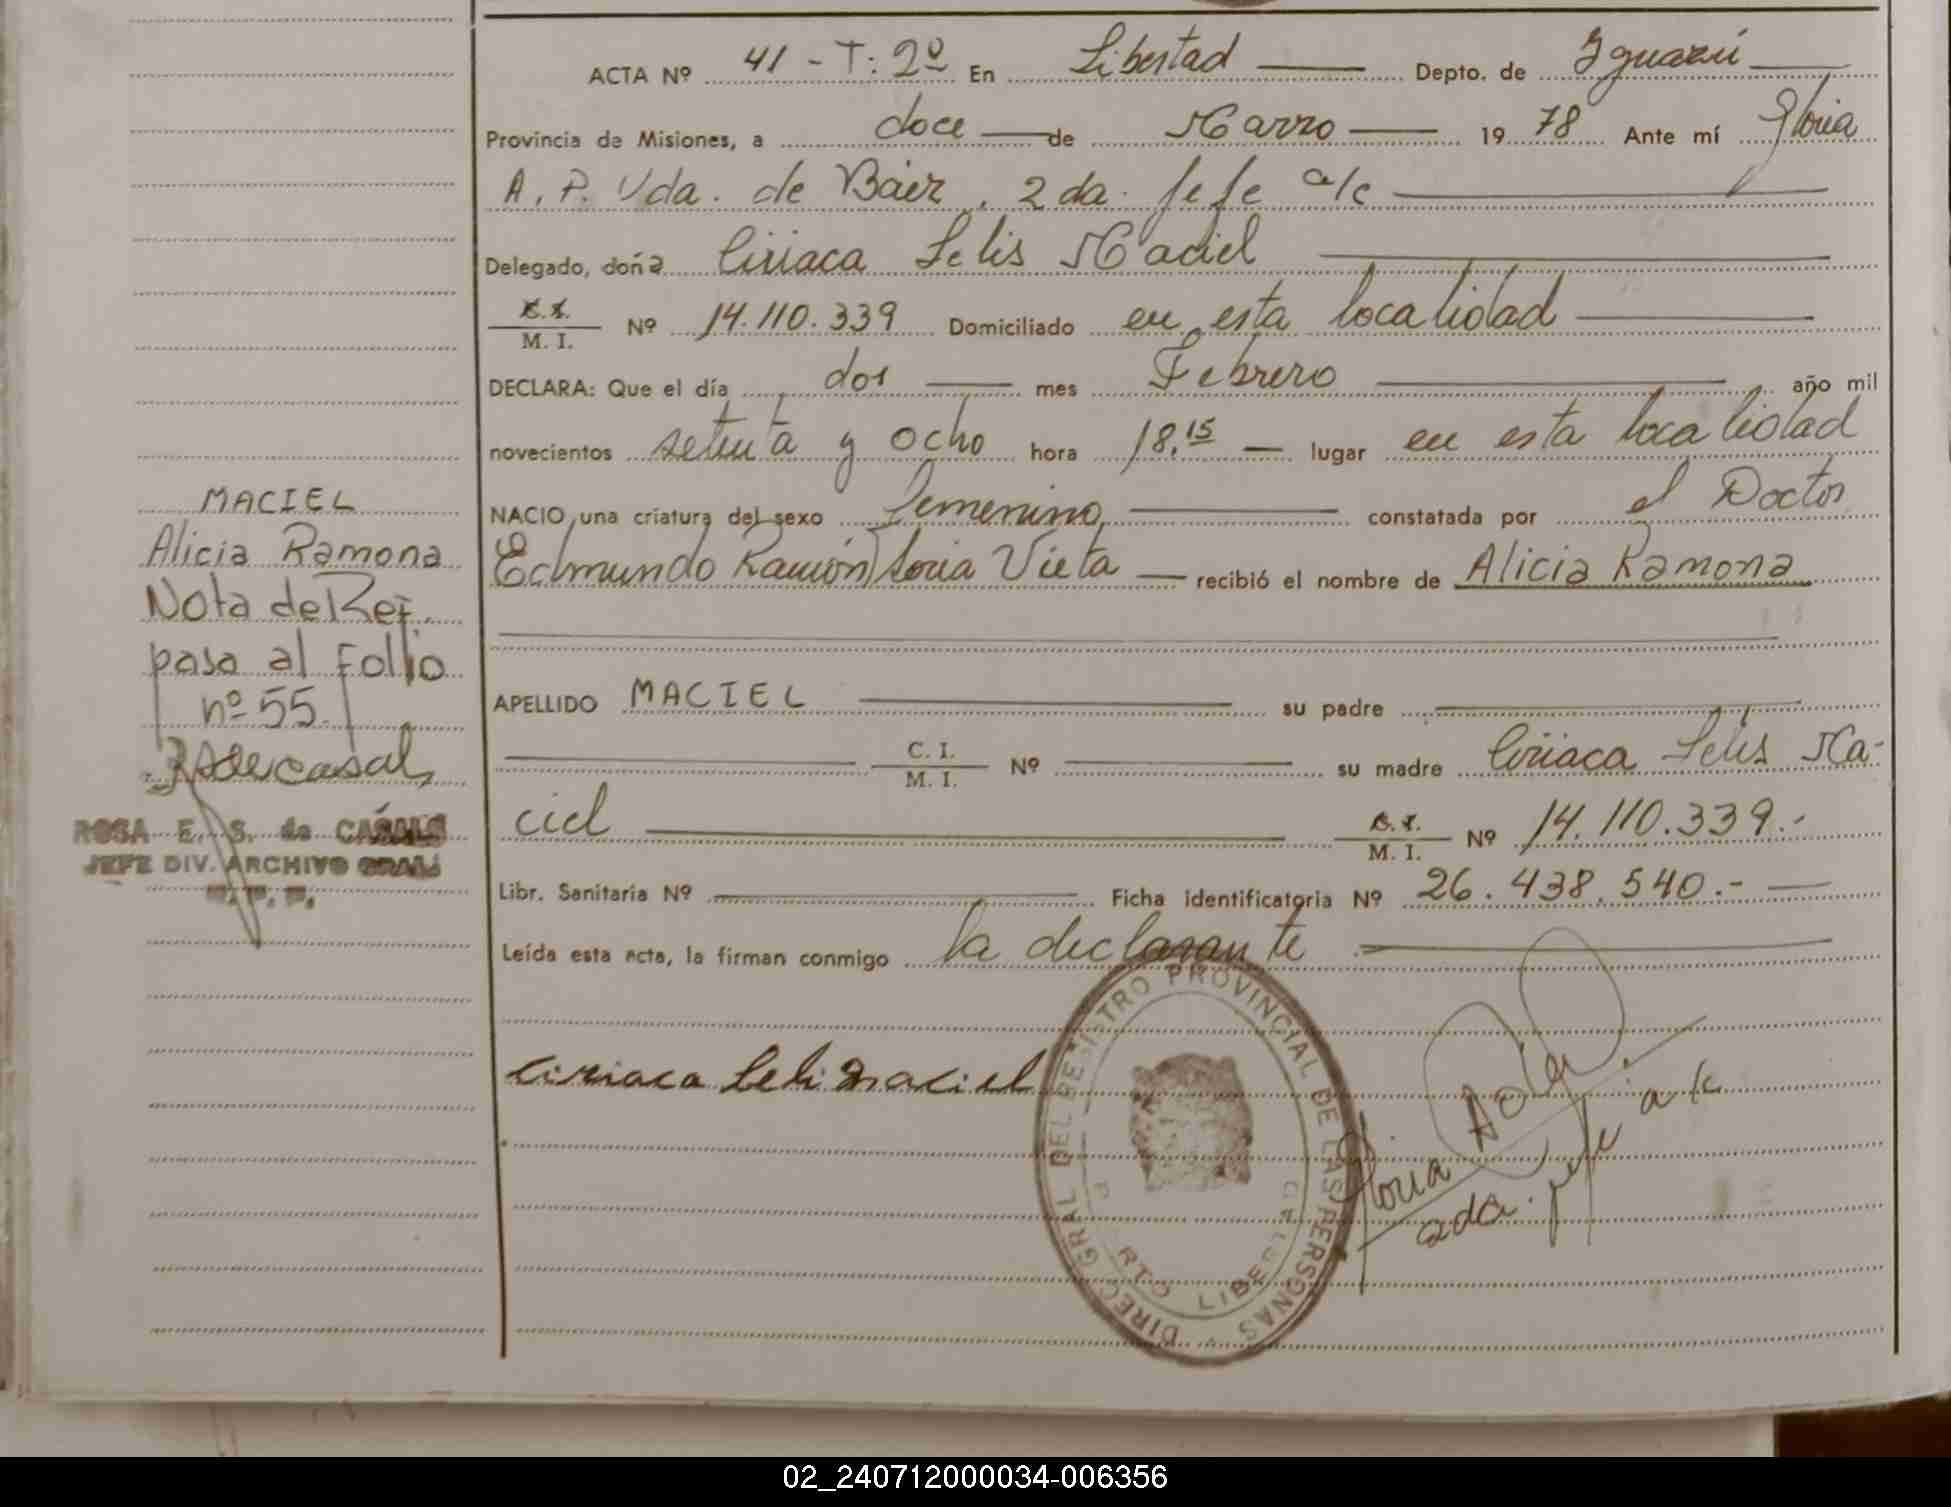 ACTA Nº 41 - T: 2º En Libertad Depto. de Iguazú
Provincia de Misiones, a doce de Marzo 1978 Ante mí Gloria
A. P. Vda. de Báez, 2da. Jefe a/c
Delegado, doña Ciriaca Selis Maciel
M. I. Nº 14.110.339 Domiciliado en esta localidad
DECLARA: Que el día dos mes Febrero año mil
novecientos setenta y ocho hora 18,15 lugar en esta localidad
NACIO una criatura del sexo femenino, constatada por el Doctor
Edmundo Ramón Soria Vieta recibió el nombre de Alicia Ramona
APELLIDO MACIEL su padre
C. I.
M. I. Nº su madre Ciriaca Selis Ma-
ciel M. I. Nº 14.110.339.-
Libr. Sanitaria Nº Ficha identificatoria Nº 26.438.540.-
Leída esta acta, la firman conmigo la declarante
ciriaca Selis maciel
Gloria
2da. jefe a/c
MACIEL
Alicia Ramona
Nota de Ref.
pasa al Folio
nº 55
ROSA E. S. de CASALS
JEFE DIV. ARCHIVO GRAL
DIREC. GRAL DEL REGISTRO PROVINCIAL DE LAS PERSONAS
PTO LIBERTAD
02_240712000034-006356